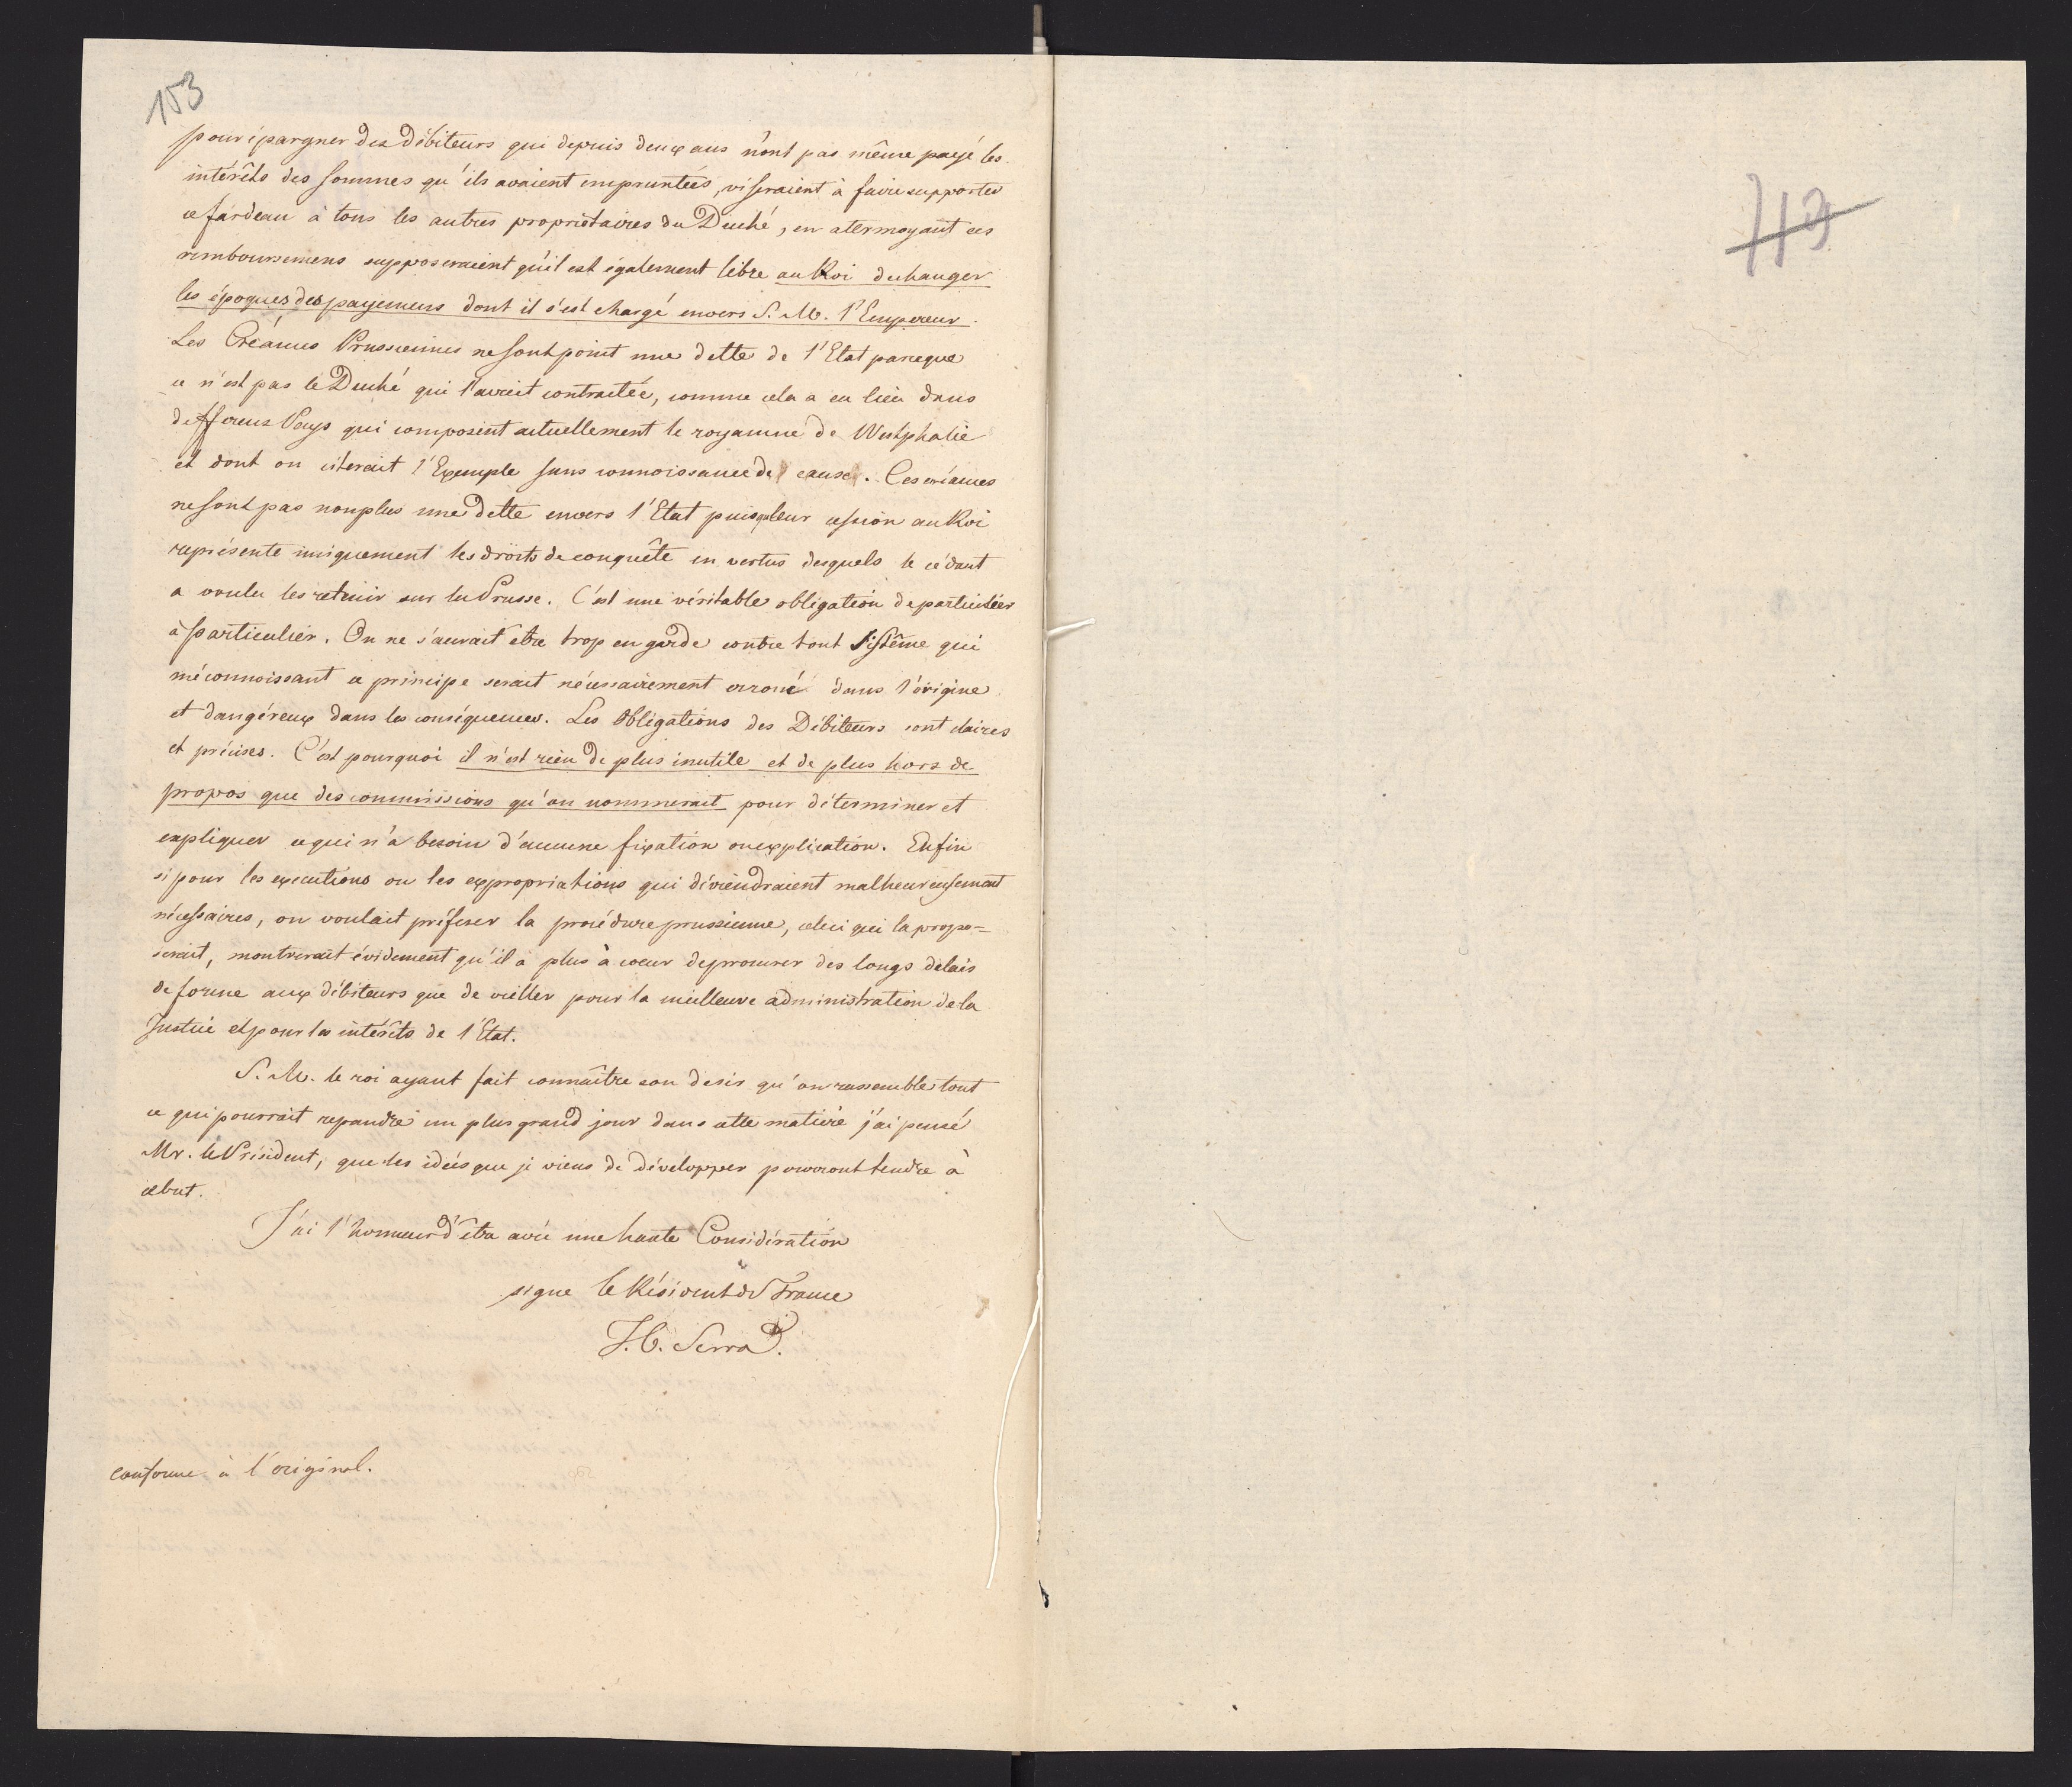 153
pour épargner des Débiteurs qui depuis deux ans n'ont pas même payé les
intérêts des sommes qu'ils avaient empruntées, viseraient à faire supporter
ce fardeau à tous les autres proprietaires du Duché, en atermoyant ces
remboursemens supposeraient qu'il est également libre au Roi de changer
les époques des payemens dont il s'est chargé envers S. M. l'Empereur.
Les Créances Prussiennes ne sont point une dette de l'Etat parceque
ce n'est pas le Duché qui l'avait contractée, comme cela a eu lieu dans
differens Pays qui composent actuellement le royaume de Westphalie
et dont on citerait l'Exemple sans connoissance de cause. Ces créances
ne sont pas nonplus une Dette envers l'Etat puisque leur cession au Roi
représente uniquement les droits de conquête en vertus desquels le cédant
a voulu les retenir sur la Prusse. C'est une véritable obligation de particulier
à particulier. On ne s'aurait etre trop en garde contre tout Sistême qui
méconnoissant ce principe serait nécessairement erroné dans l'origine
et dangéreux dans les conséquences. Les Obligations des Débiteurs sont claires
et précises. C'est pourquoi il n'est rien de plus inutile et de plus hors de
propos que des commissions qu'on nommerait pour déterminer et
expliquer ce qui n'a besoin d'aucune fixation ou explication. Enfin
si pour les executions ou les expropriations qui déviendraient malheureusement
nécessaires, on voulait préferer la procédure prussienne, celui qui la propo=
serait, montrerait évidement qu'il a plus à coeur de procurer des longs délais
de forme aux débiteurs que de veiller pour la meilleure administration de la
Justice et pour les intérêts de l'Etat.
S. M. le roi ayant fait connaître son desir qu'on rassemble tout
ce qui pourrait repandre un plus grand jour dans cette matière j'ai pensé
Mr. le Président, que les idées que je viens de développer pourront tendre à
ce but.
J'ai l'honneur d'être avec une haute Considération
signe le Résident de France
J. C. Serra.
conforme à l'original.